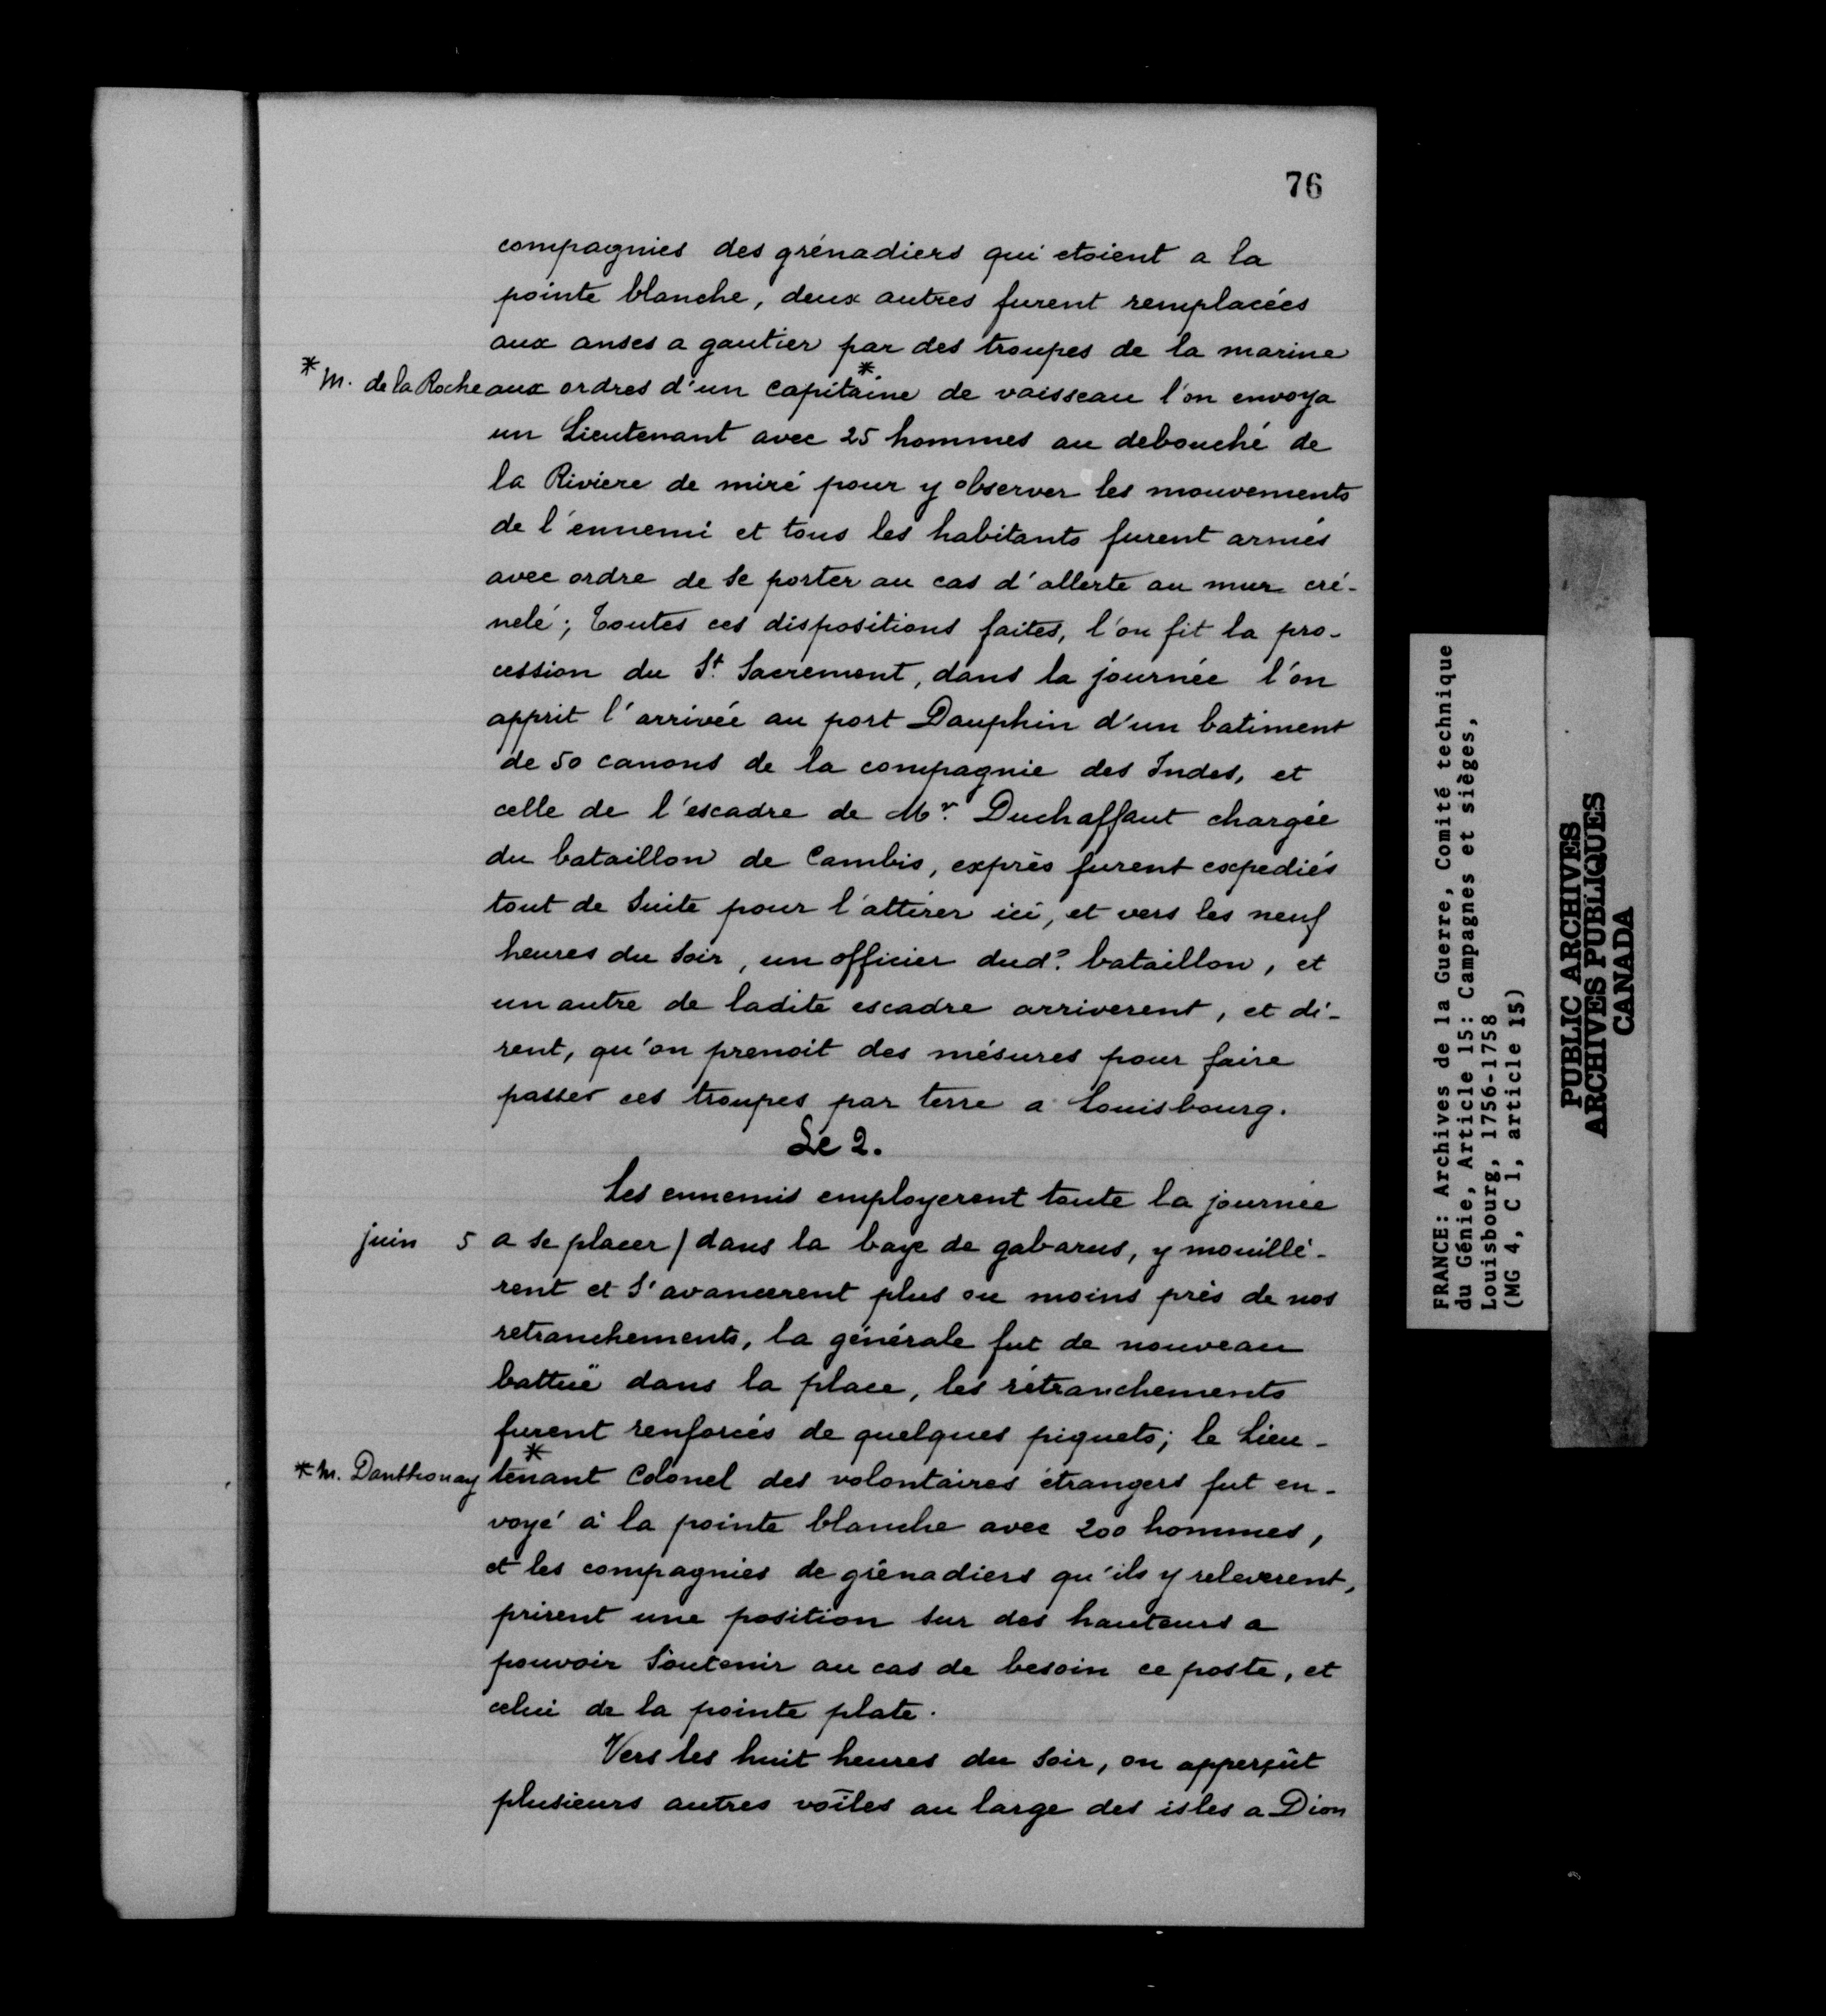 76
compagnies des grénadiers qui etoient a la
pointe blanche, deux autres furent remplacées
aux anses a gautier par des troupes de la marine
* M. de la Roche aux ordres d'un capitaine * de vaisseau l'on envoya
un Lieutenant avec 25 hommes au debouché de
la Riviere de miré pour y observer les mouvements
de l'ennemi et tous les habitants furent armés
avec ordre de se porter au cas d'allerte au mur cré-
nelé; toutes ces dispositions faites, l'on fit la pro-
cession du St. Sacrement, dans la journée l'on
apprit l'arrivée au port Dauphin d'un batiment
de 50 canons de la compagnie des Indes, et
celle de l'escadre de Mr. Duchaffaut chargée
du bataillon de Cambis, exprès furent expediés
tout de suite pour l'attirer ici, et vers les neuf
heures du soir, un officier dud? bataillon, et
un autre de ladite escadre arriverent, et di-
rent, qu'on prenoit des mésures pour faire
passer ces troupes par terre a Louisbourg.
Le 2.
Les ennemis employerent toute la journée
juin 5 a se placer / dans la baye de gabarus, y mouillé-
rent et s'avancerent plus ou moins près de nos
retranchements, la générale fut de nouveau
battuë dans la place, les rétranchements
furent renforcés de quelques piquets; le Lieu-
* M. Danthonay tenant * Colonel des volontaires étrangers fut en-
voyé à la pointe blanche avec 200 hommes,
et les compagnies de grénadiers qu'ils y releverent,
prirent une position sur des hauteurs a
pouvoir soutenir au cas de besoin ce poste, et
celui de la pointe plate.
Vers les huit heures du soir, on apperçût
plusieurs autres voîles au large des isles a Dion
FRANCE: Archives de la Guerre, Comité technique
du Génie, Article 15: Campagnes et sièges,
Louisbourg, 1756-1758
(MG 4, C 1, article 15)
PUBLIC ARCHIVES
ARCHIVES PUBLIQUES
CANADA